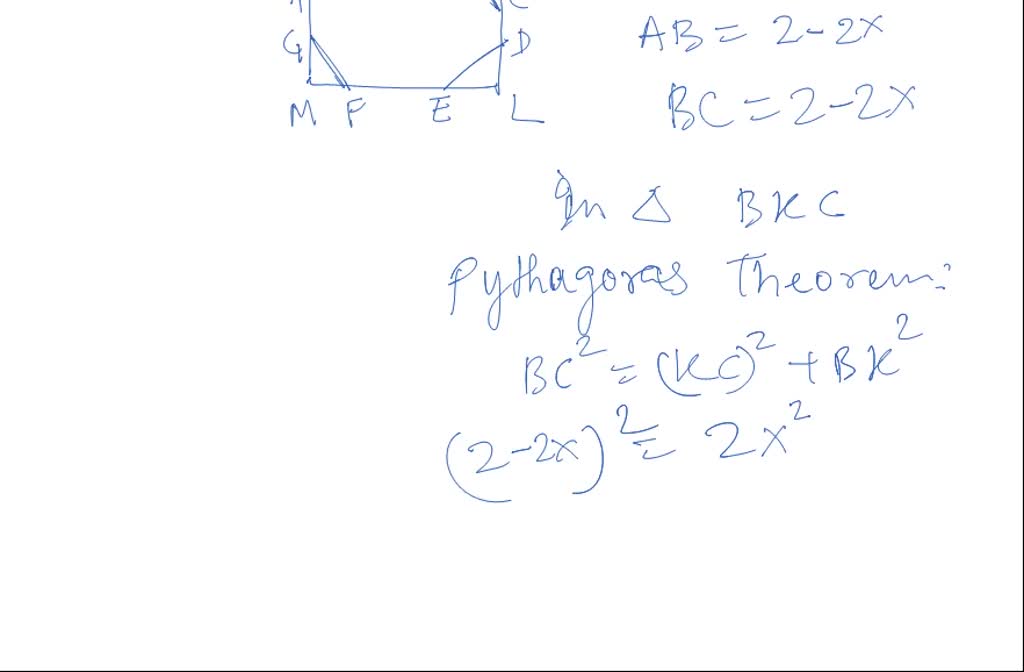 G D
M F E L
AB = 2 - 2x
BC = 2 - 2x
In △ BKC
Pythagoras Theorem:
BC² = (KC)² + BK²
(2 - 2x)² = 2x²